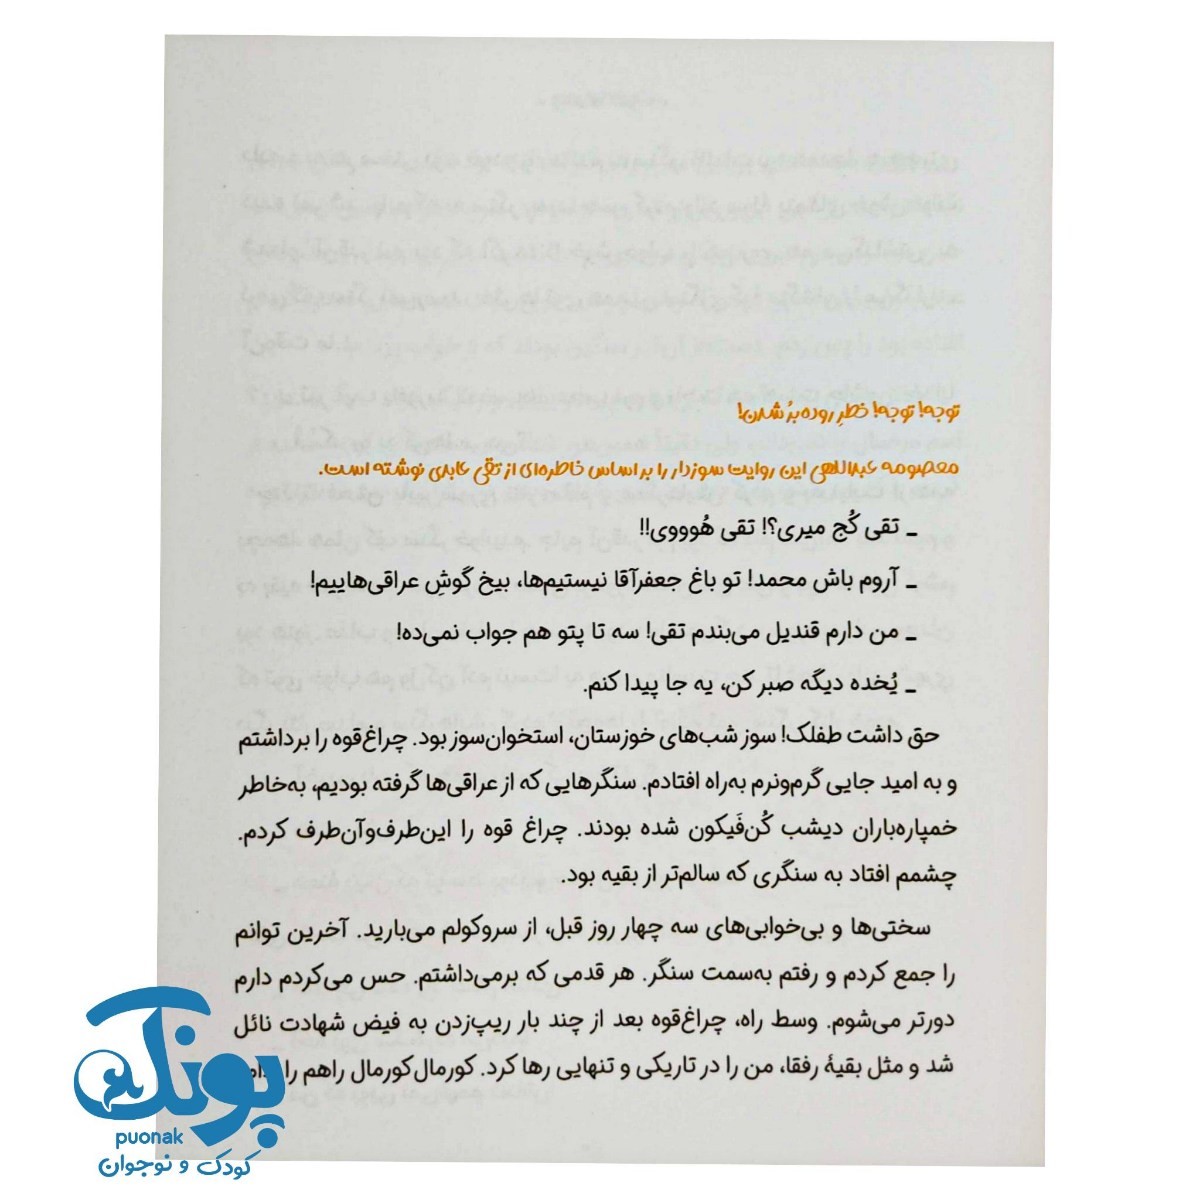 توجه! توجه! خطرِ روده‌بُر شدن!
معصومه عبداللهی این روایت سوزدار را بر اساس خاطره‌ای از تقی عابدی نوشته است.
_ تقی کُج میری؟! تقی هُوووی!!
_ آروم باش محمد! تو باغ جعفرآقا نیستیم‌ها، بیخ گوشِ عراقی‌هاییم!
_ من دارم قندیل می‌بندم تقی! سه تا پتو هم جواب نمی‌ده!
_ یُخده دیگه صبر کن، یه جا پیدا کنم.
حق داشت طفلک! سوز شب‌های خوزستان، استخوان‌سوز بود. چراغ‌قوه را برداشتم
و به امید جایی گرم‌ونرم به‌راه افتادم. سنگرهایی که از عراقی‌ها گرفته بودیم، به‌خاطر
خمپاره‌باران دیشب کُن‌فَیکون شده بودند. چراغ قوه را این‌طرف‌وآن‌طرف کردم.
چشمم افتاد به سنگری که سالم‌تر از بقیه بود.
سختی‌ها و بی‌خوابی‌های سه چهار روز قبل، از سروکولم می‌بارید. آخرین توانم
را جمع کردم و رفتم به‌سمت سنگر. هر قدمی که برمی‌داشتم. حس می‌کردم دارم
دورتر می‌شوم. وسط راه، چراغ‌قوه بعد از چند بار ریپ‌زدن به فیض شهادت نائل
شد و مثل بقیهٔ رفقا، من را در تاریکی و تنهایی رها کرد. کورمال‌کورمال راهم را
پونک
puonak
کودک و نوجوان